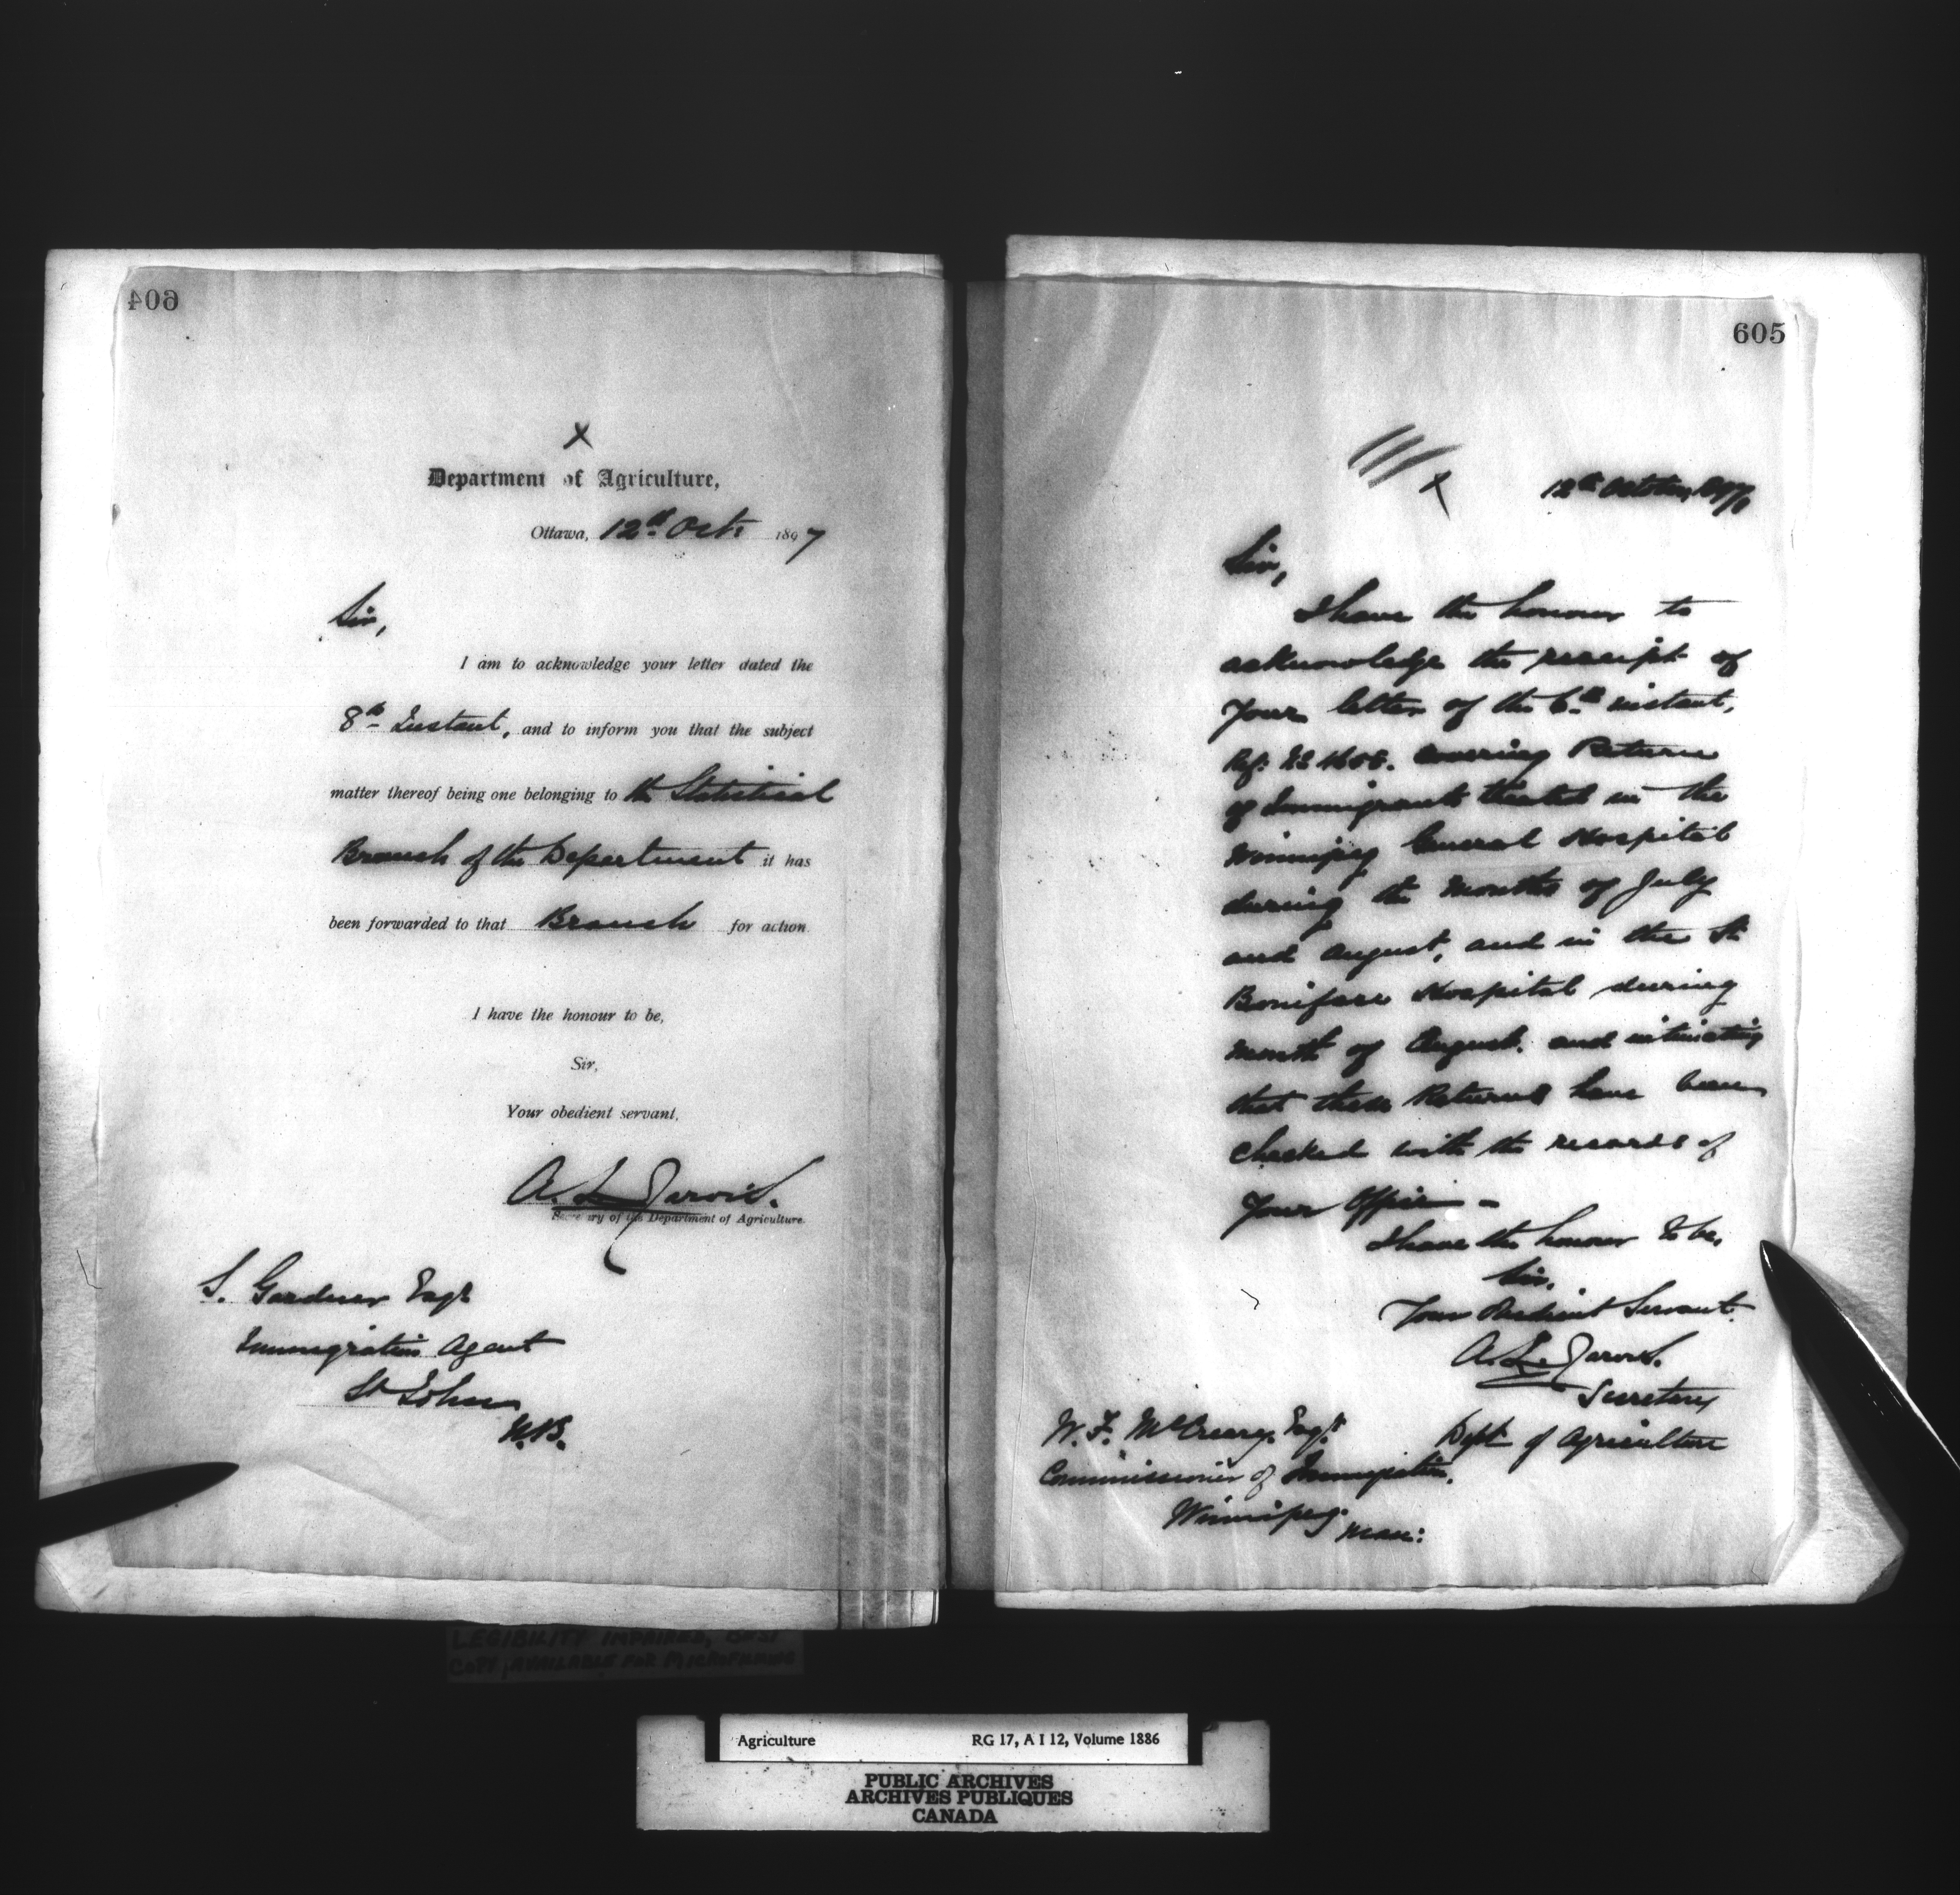 604
x
Department of Agriculture,
Ottawa, 12th Oct. 1897
Sir,
I am to acknowledge your letter dated the
8th Instant, and to inform you that the subject
matter thereof being one belonging to the Statistical
Branch of the Department it has
been forwarded to that Branch for action.
I have the honour to be,
Sir,
Your obedient servant,
A. L. Jarvis.
Secretary of the Department of Agriculture.
S. Gardner Esqr
Immigration Agent
St John
N.B.
605
x
12th October, 1897
Sir,
I have the honour to
acknowledge the receipt of
Your letter of the 6th instant,
Ref: covering Returns
of Immigrants treated in the
Winnipeg General Hospital
during the months of July
and August, and in the St
Boniface Hospital during
month of August. and intimating
that these Returns have been
checked with the records of
Your Office –
I have the honour to be,
Sir,
Your Obedient Servant.
A. L. Jarvis.
Secretary
Dept of Agriculture
W. F. McCreary, Esqr.
Commissioner of Immigration.
Winnipeg.
Man:
LEGIBILITY IMPAIRED, BEST
COPY AVAILABLE FOR MICROFILMING
Agriculture RG 17, A I 12, Volume 1886
PUBLIC ARCHIVES
ARCHIVES PUBLIQUES
CANADA